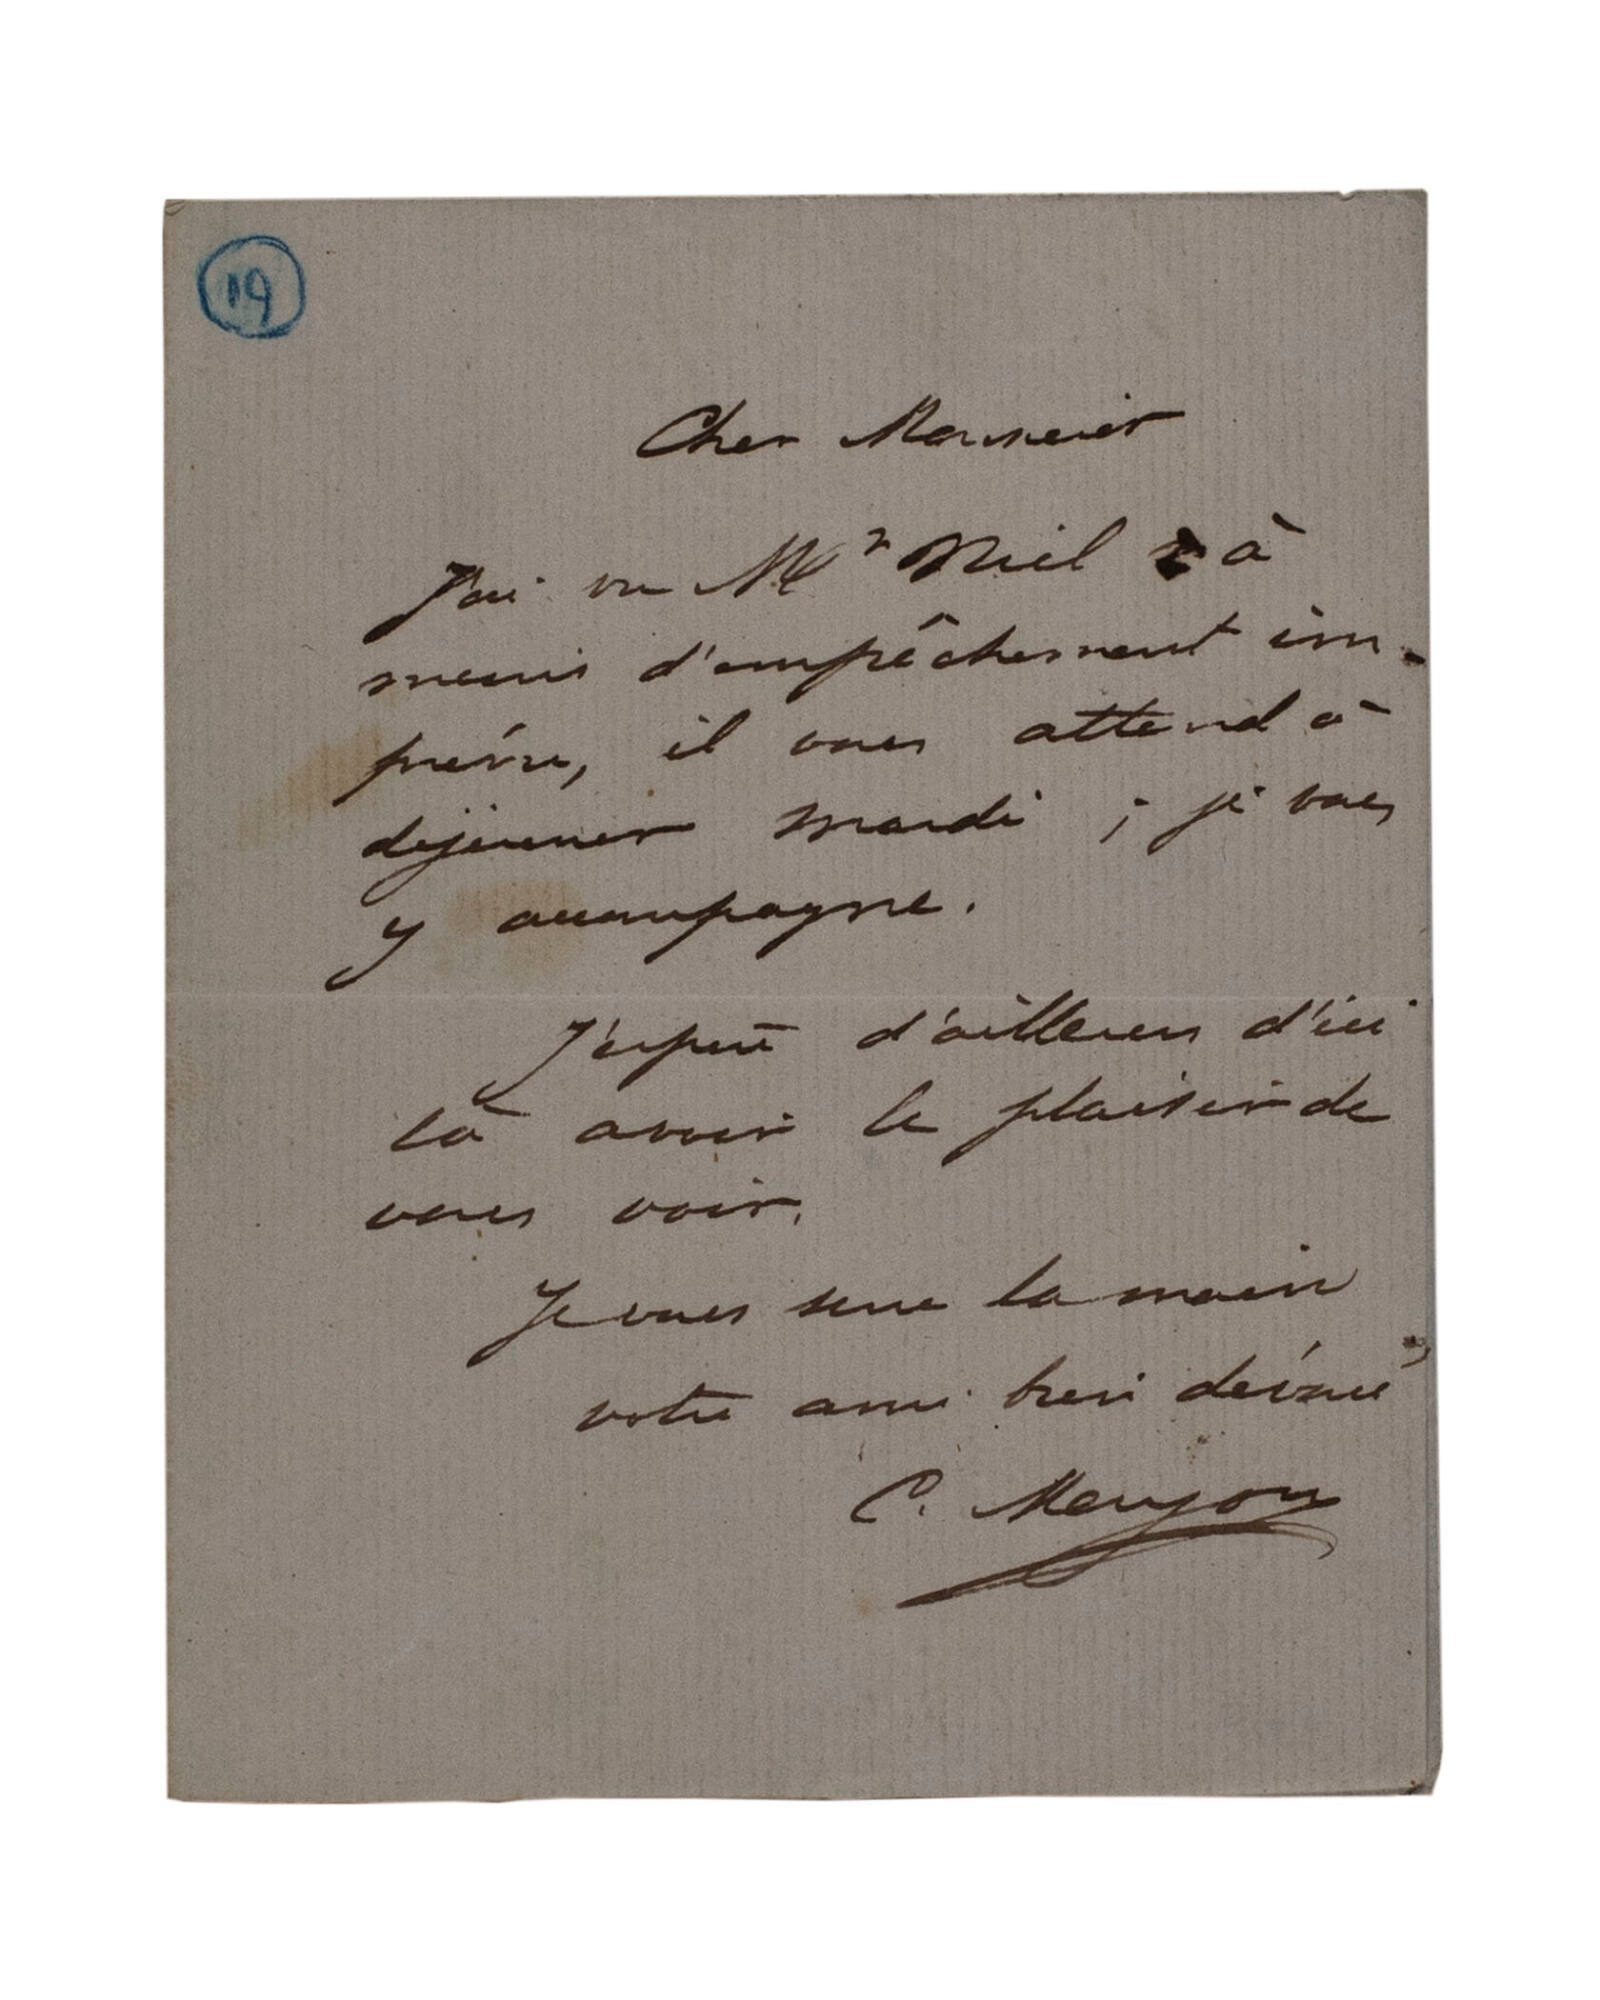 19
Cher Monsieur
J'ai vu Mr Niel à
moins d'empêchement im-
prévu, il vous attend à
dejeuner mardi ; je vous
y accompagne.
J'espère d'ailleurs d'ici
là avoir le plaisir de
vous voir.
Je vous serre la main
votre ami très dévoué,
C. Meryon